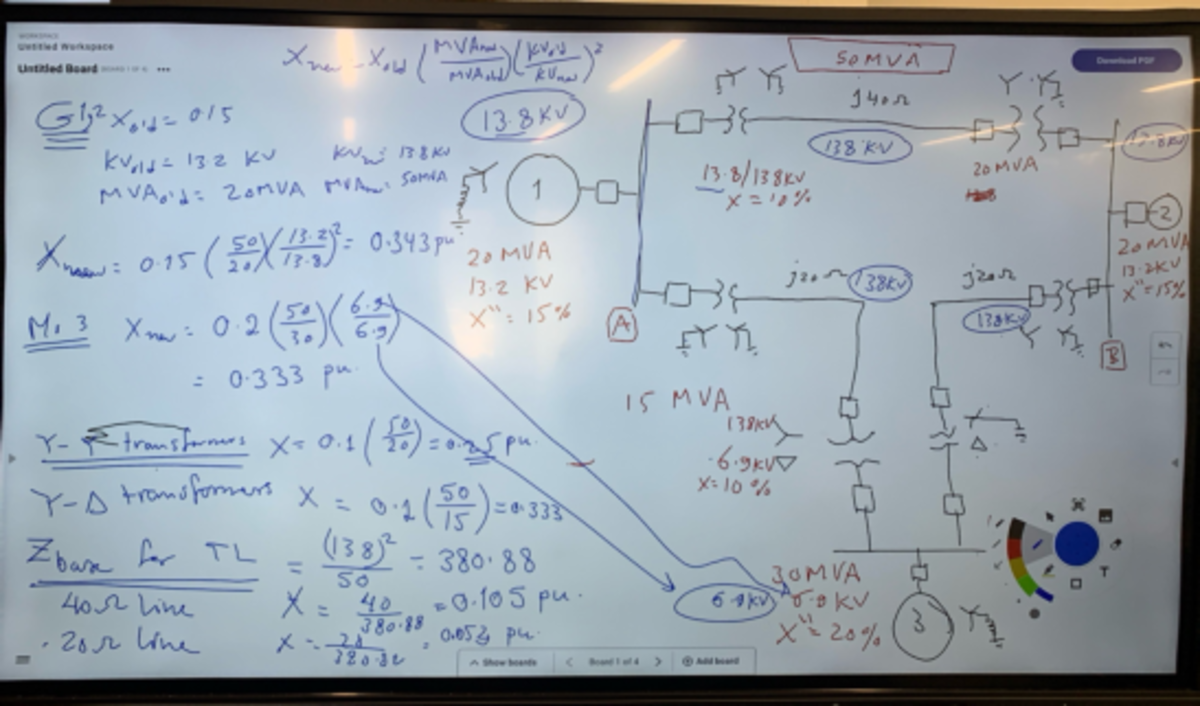 WORKSPACE
Untitled Workspace
Untitled Board (BOARD 1 OF 4) •••
Download PDF
X new = X old (MVA new / MVA old) (KV old / KV new)²
50MVA
G1,2 X old = 0.15
KV old = 13.2 KV KV new = 13.8 KV
MVA old = 20MVA MVA new = 50MVA
X new = 0.15 (50/20)(13.2/13.8)² = 0.343 pu
M, 3 X new = 0.2 (50/30)(6.9/6.9)
= 0.333 pu.
Y-Y transformers X = 0.1 (50/20) = 0.25 pu.
Y-Δ transformers X = 0.1 (50/15) = 0.333
Z base for TL = (138)²/50 = 380.88
40Ω Line X = 40/380.88 = 0.105 pu.
20Ω Line X =
13.8 KV
1
20 MVA
13.2 KV
X" = 15%
A
Y Y
j40Ω
Y Y
138 KV
13.8/138KV
X = 10%
20 MVA
13.8KV
2
20 MVA
13.2KV
X" = 15%
j20Ω
138KV
j20Ω
138KV
Y Y
Y Y
B
15 MVA
138KV Y
6.9KV Δ
X = 10%
Y
Δ
6.9KV
30MVA
6.9 KV
X" = 20%
3
Y
T
Show boards
Board 1 of 4
Add board